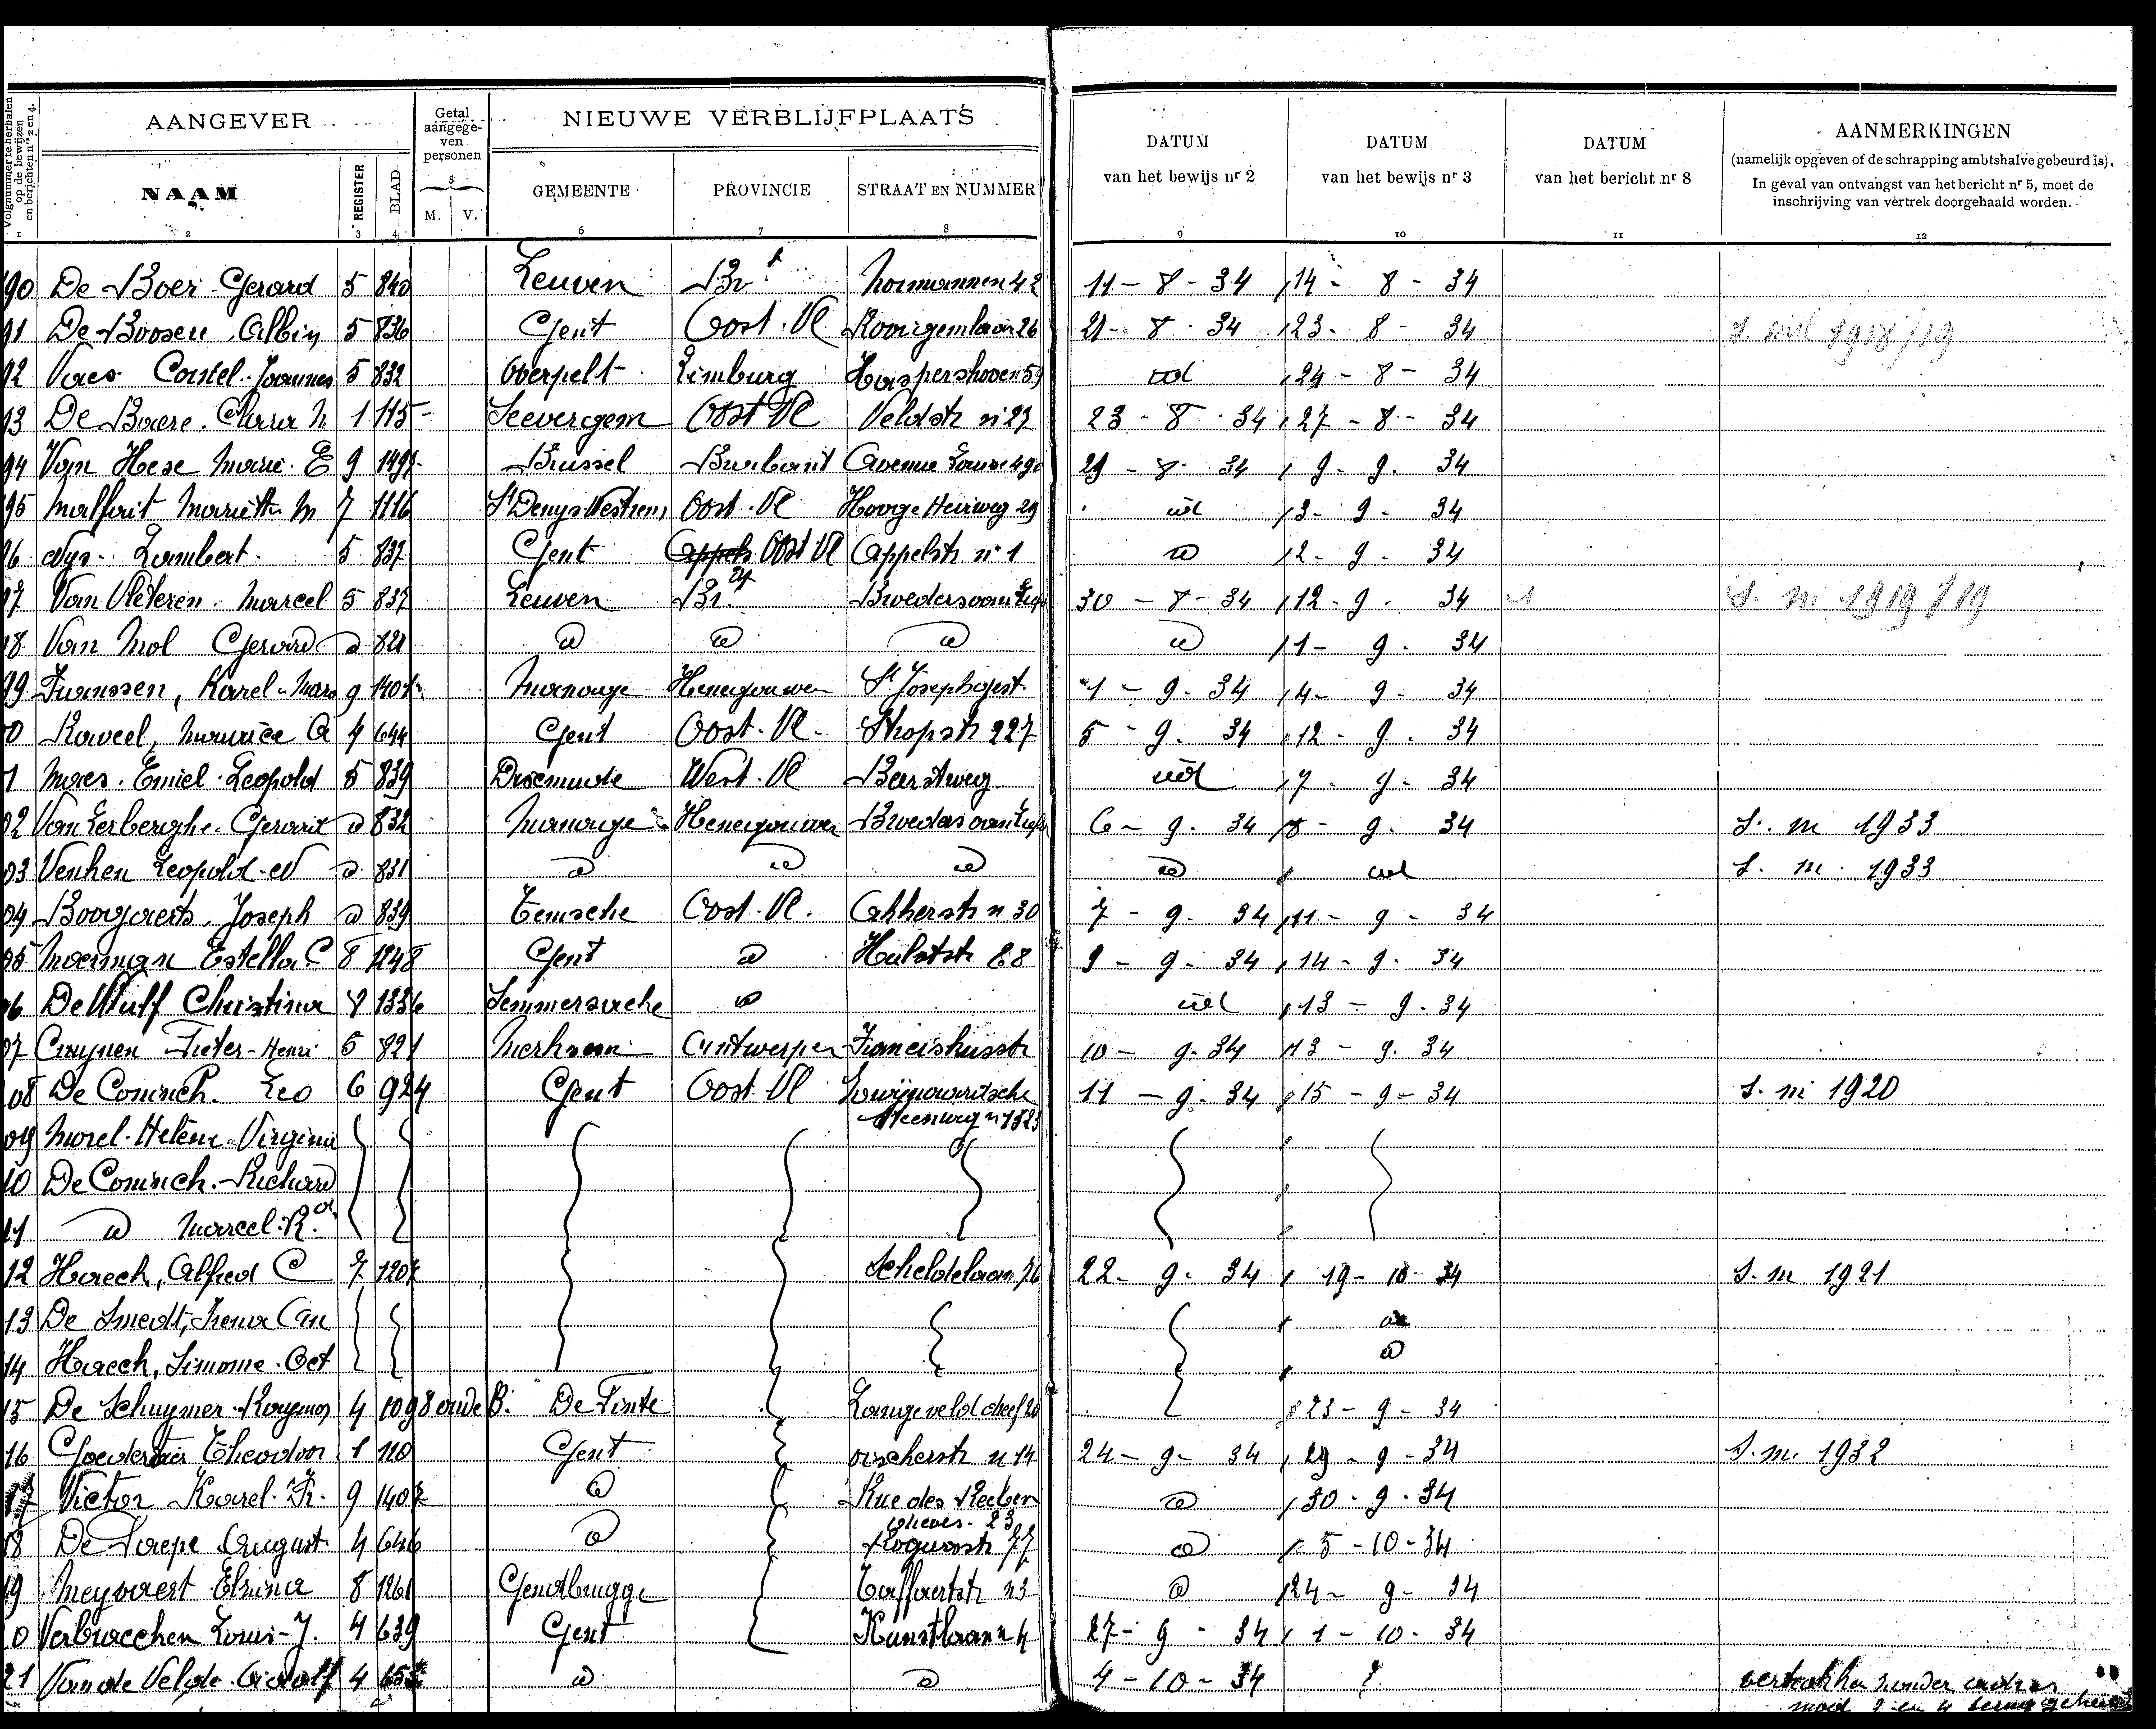 Volgnummer te herhalen op de bewijzen en berichten nrs 2 en 4.
AANGEVER
Getal aangegeven personen
NIEUWE VERBLIJFPLAATS
DATUM van het bewijs nr 2
DATUM van het bewijs nr 3
DATUM van het bericht nr 8
AANMERKINGEN
(namelijk opgeven of de schrapping ambtshalve gebeurd is).
In geval van ontvangst van het bericht nr 5, moet de
inschrijving van vertrek doorgehaald worden.
NAAM REGISTER BLAD 5 M. V. GEMEENTE PROVINCIE STRAAT EN NUMMER
1 2 3 4 6 7 8 9 10 11 12
90 De Boer Gerard 5 840 Leuven Br. Normannen 42 11 - 8 - 34 14 - 8 - 34
91 De Boosere Albin 5 836 Gent Oost. Vl. 26 21 - 8 - 34 23 - 8 - 34 S. mil 1918/19
92 Vaes Constel Joannes 5 832 Overpelt Limburg Haspershoven 59 id 24 - 8 - 34
93 De Baere Clara M 1 115 Seevergem Oost Vl Veldstr n 27 23 - 8 - 34 27 - 8 - 34
94 Van Hese Marie E 9 Brussel Brabant Avenue Louise 490 29 - 8 - 34 9 - 9 - 34
95 Malfait Mariette M 7 1116 St Denys Westrem Oost. Vl Hooge Heirweg 29 id 3 - 9 - 34
96 Nys Lambert 5 837 Gent Oost Vl Appelstr n° 1 id 2 - 9 - 34
97 Van Vleteren Marcel 5 837 Leuven Br. Broeders van 30 - 8 - 34 12 - 9 - 34 S. m 1919/19
98 Van Mol Gerard id 821 id id id id 1 - 9 - 34
99 Franssen, Karel Marc 9 1401 Manage Henegouwen St Josephgest 1 - 9 - 34 4 - 9 - 34
0 Raveel, Maurice A 4 644 Gent Oost. Vl. Stropstr 227 5 - 9 - 34 12 - 9 - 34
1 Maes Emiel Leopold 5 839 Dixmude West. Vl Beerstweg id 7 - 9 - 34
02 Van Lerberghe Gerard id 832 Manage Henegouwen Broeders van 6 - 9 - 34 8 - 9 - 34 S. m 1933
03 Venken Leopold N id 831 id id id id id S. m. 1933
04 Boogaerts Joseph id 839 Temsche Oost. Vl. Akkerstr n 30 7 - 9 - 34 11 - 9 - 34
05 Moerman Estella C 8 1248 Gent id Hulststr 68 9 - 9 - 34 14 - 9 - 34
06 De Wulf Christina 8 1336 Semmersaeke id id 13 - 9 - 34
07 Cruynen Pieter-Henri 5 821 Merksem Antwerpen Franciskusstr 10 - 9 - 34 13 - 9 - 34
08 De Coninck Leo 6 924 Gent Oost. Vl Zwijnaardsche 11 - 9 - 34 15 - 9 - 34 S. m 1920
Steenweg n
09 Morel Helène Virginie
10 De Coninck Richard
11 id Marcel R.
12 Haeck, Alfred C 7 1207 Scheldelaan 76 22 - 9 - 34 19 - 10 - 34 S. m 1921
13 De Smedt, Irena Cam id
14 Haeck, Simonne Oct id
15 De Schuymer Raymon 4 1098 oude B. De Pinte Langeveld 23 - 9 - 34
16 Goedertier Theodoor 1 120 Gent visscherstr n 14 24 - 9 - 34 29 - 9 - 34 S. m. 1932
17 Victor Karel Fr. 9 1407 id Rue des id 30 - 9 - 34
18 De Paepe August 4 646 id 77 id 5 - 10 - 34
19 Meyvaert Elvina 8 1261 Gendbrugge n 3 id 24 - 9 - 34
0 Verbraecken Louis J. 4 639 Gent Kunstlaan n 4 27 - 9 - 34 1 - 10 - 34
21 Van de Velde Adolf 4 id id 4 - 10 - 34 ? vertrokken zonder adres
mod 2 en 4